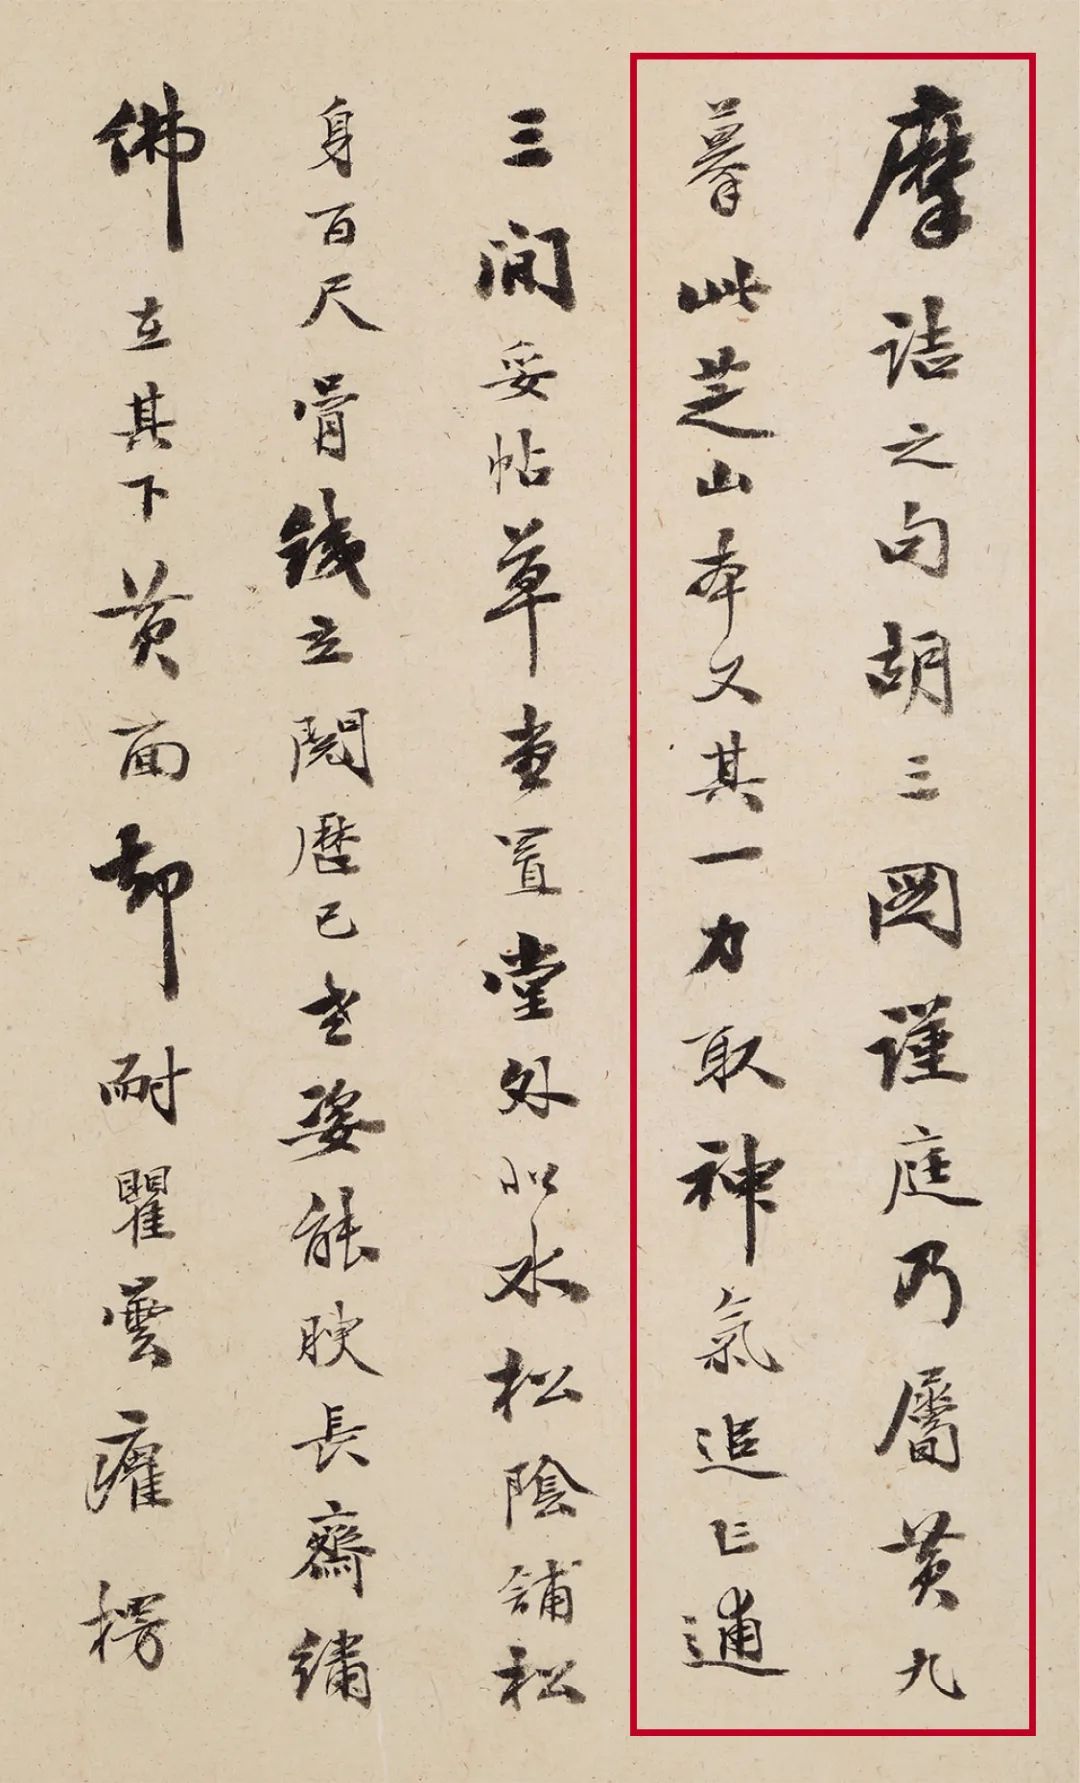 摩詰之句胡三圖謹庭乃屬黃九
摹此芝山本又其一力取神氣追亡逋
三間妥帖草堂置堂外水松陰鋪松
身百尺骨錢立閱歷已老姿態映長齋繡
佛立其下黃面却耐瞿曇癯楞